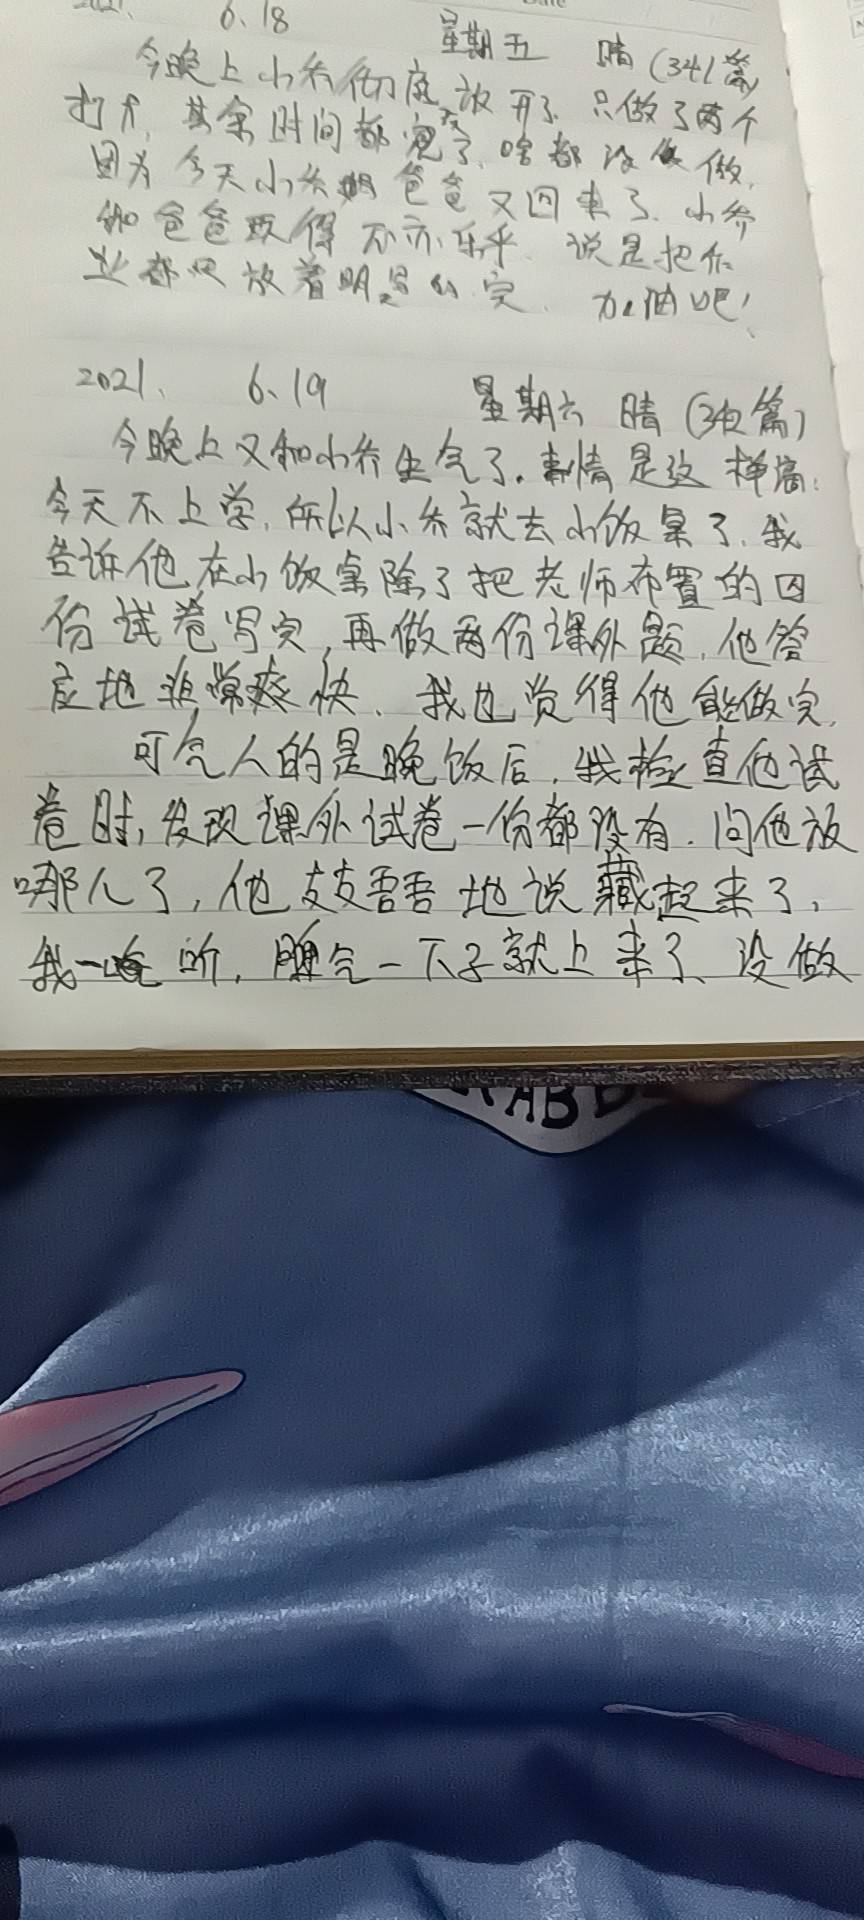 2021. 6.18 星期五 晴(341篇)
今晚上小乔彻底放开了.只做了两个
打卡,其余时间都完了.啥都没做.
因为今天小乔爸爸又回来了.小乔
和爸爸玩得不亦乐乎.说是把作
业都放着明早.完.加油吧!
2021. 6.19 星期六 晴(342篇)
今晚上又和小乔生气了.事情是这样滴:
今天不上学,所以小乔就去小饭桌了.我
告诉他在小饭桌除了把老师布置的四
份试卷写完,再做两份课外题,他答
应地非常爽快、我也觉得他能做完.
可气人的是晚饭后,我检查他试
卷时,发现课外试卷一份都没有.问他放
哪儿了,他支支吾吾地说藏起来了,
我一听,脾气一下子就上来了、没做
ABB